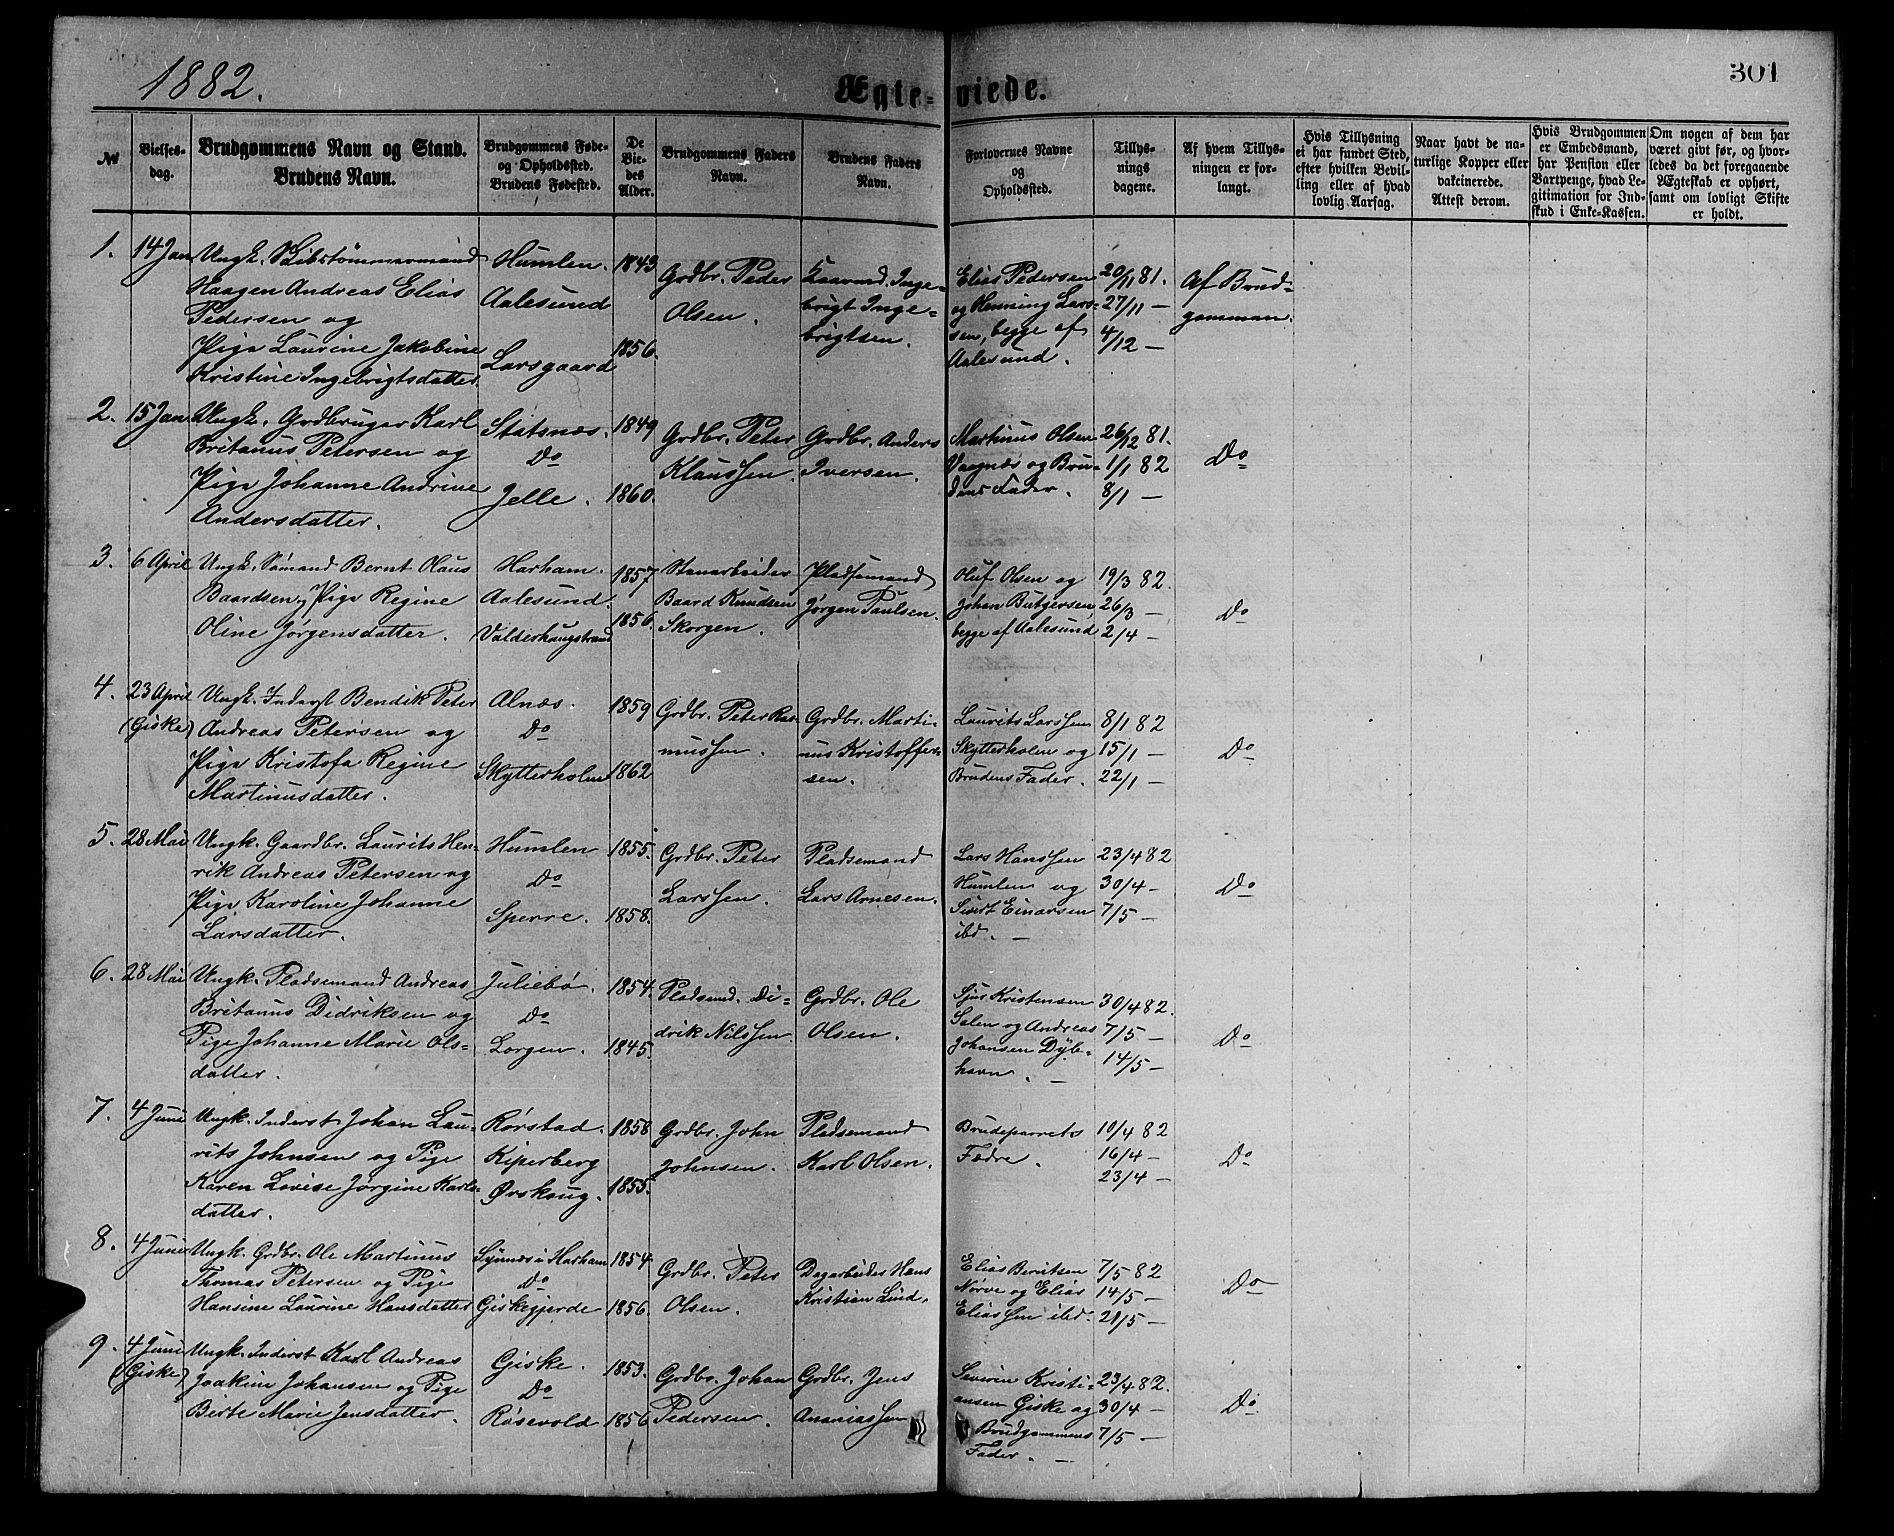 1882.
Ægte-viede.
301
№
Vielses-
dag.
Brudgommens Navn og Stand.
Brudens Navn.
Brudgommens Føde-
og Opholdssted.
Brudens Fødested.
De
Vie-
des
Alder.
Brudgommens Faders
Navn.
Brudens Faders
Navn.
Forlovernes Navne
og
Opholdssted.
Tillys-
nings
dagene.
Af hvem Tillys-
ningen er for-
langt.
Hvis Tillysning
ei har fundet Sted,
efter hvilken Bevil-
ling eller af hvad
lovlig Aarsag.
Naar havt de na-
turlige Kopper eller
vakcinerede.
Attest derom.
Hvis Brudgommen
er Embedsmand,
har Pension eller
Vartpenge, hvad Le-
gitimation for Ind-
skud i Enke-Kassen.
Om nogen af dem har
været givt før, og hvor-
ledes da det foregaaende
Ægteskab er ophørt,
samt om lovligt Skifte
er holdt.
1.
14 Jan
Ungk. Skibstømmermand
Haagen Andreas Elias
Pedersen og
Pige Laurine Jakobine
Kristine Ingebrigtsdatter.
Humlen.
Aalesund
Larsgaard
1843
1856.
Grdbr. Peder
Olsen.
Kaarmd. Inge-
brigt Inge-
brigtsen.
Elias Pedersen
og Henning Lars-
sen, begge af
Aalesund.
20/11 81.
27/11 —
4/12 —
Af Brud-
gommen.
2.
15 Jan
Ungk. Grdbruger Karl
Britanus Petersen og
Pige Johanne Andrine
Andersdatter.
Statsnæs.
Do
Jelle.
1849
1860.
Grdbr. Peter
Klaussen.
Grdbr. Anders
Iversen.
Martinus Olsen
Vaagnæs og Bru-
dens Fader.
26/12 81.
1/1 82
8/1 —
Do
3.
6 April
Ungk. Sømand Bernt Olaus
Baardsen, Pige Regine
Oline Jørgensdatter.
Harham.
Aalesund.
Valderhaugstrand
1857
1856.
Stenarbeider
Baard Knudsen
Skorgen.
Pladsemand
Jørgen Paulsen.
Oluf Olsen og
Johan Butgersen
begge af Aalesund
19/3 82.
26/3 —
2/4 —
Do
4.
23 April
(Giske)
Ungk. Inderst Bendik Peter
Andreas Petersen og
Pige Kristofa Regine
Martinusdatter.
Alnæs.
Do
Skytterholm
1859
1862
Grdbr. Peter Ras-
mussen.
Grdbr. Marti-
nus Kristoffer-
sen.
Laurits Larssen
Skytterholm og
Brudens Fader.
8/1 82
15/1 —
22/1 —
Do
5.
28 Mai
Ungk. Gaardbr. Laurits Hen-
rik Andreas Petersen og
Pige Karoline Johanne
Larsdatter.
Humlen
Do
Sperre.
1855.
1858.
Grdbr. Peter
Larssen.
Pladsemand
Lars Arnesen.
Lars Hanssen
Humlen og
Sivert Einarsen
ibd. —
23/4 82
30/4 —
7/5 —
Do
6.
28 Mai
Ungk. Pladsemand Andreas
Britanus Didriksen og
Pige Johanne Marie Ols-
datter.
Juliebø.
Do
Lorgen.
1854.
1845.
Pladsmd. Di-
drik Nilssen.
Grdbr. Ole
Olsen.
Sjur Kristensen
Salen og Andreas
Johansen Dyb-
havn. —
30/4 82.
7/5 —
14/5 —
Do
7.
4 Juni
Ungk. Inderst Johan Lau-
rits Johnsen og Pige
Karen Lovise Jørgine Karls-
datter.
Rørstad.
Kiperberg
Ørskoug.
1858
1855.
Grdbr. John
Johnsen.
Pladsemand
Karl Olsen.
Brudeparrets
Fædre.
10/4 82
16/4 —
23/4 —
Do
8.
4 Juni
Ungk. Grdbr. Ole Martinus
Thomas Petersen og Pige
Hansine Laurine Hansdatter
Synnæs i Harham
Do
Giskegjerde
1854.
1856.
Grdbr. Peter
Olsen.
Dagarbeider Hans
Kristian Lind.
Elias Berntsen
Nørve og Elias
Eliassen ibd.
7/5 82
14/5 —
21/5 —
Do
9.
4 Juni
(Giske)
Ungk. Inderst Karl Andreas
Joakim Johansen og Pige
Birte Marie Jensdatter.
Giske.
Do
Røsevold
1853.
1856
Grdbr. Johan
Pedersen.
Grdbr. Jens
Ananiassen
Severin Kristi-
ansen Giske og
Brudgommens
Fader. —
23/4 82.
30/4 —
7/5 —
Do